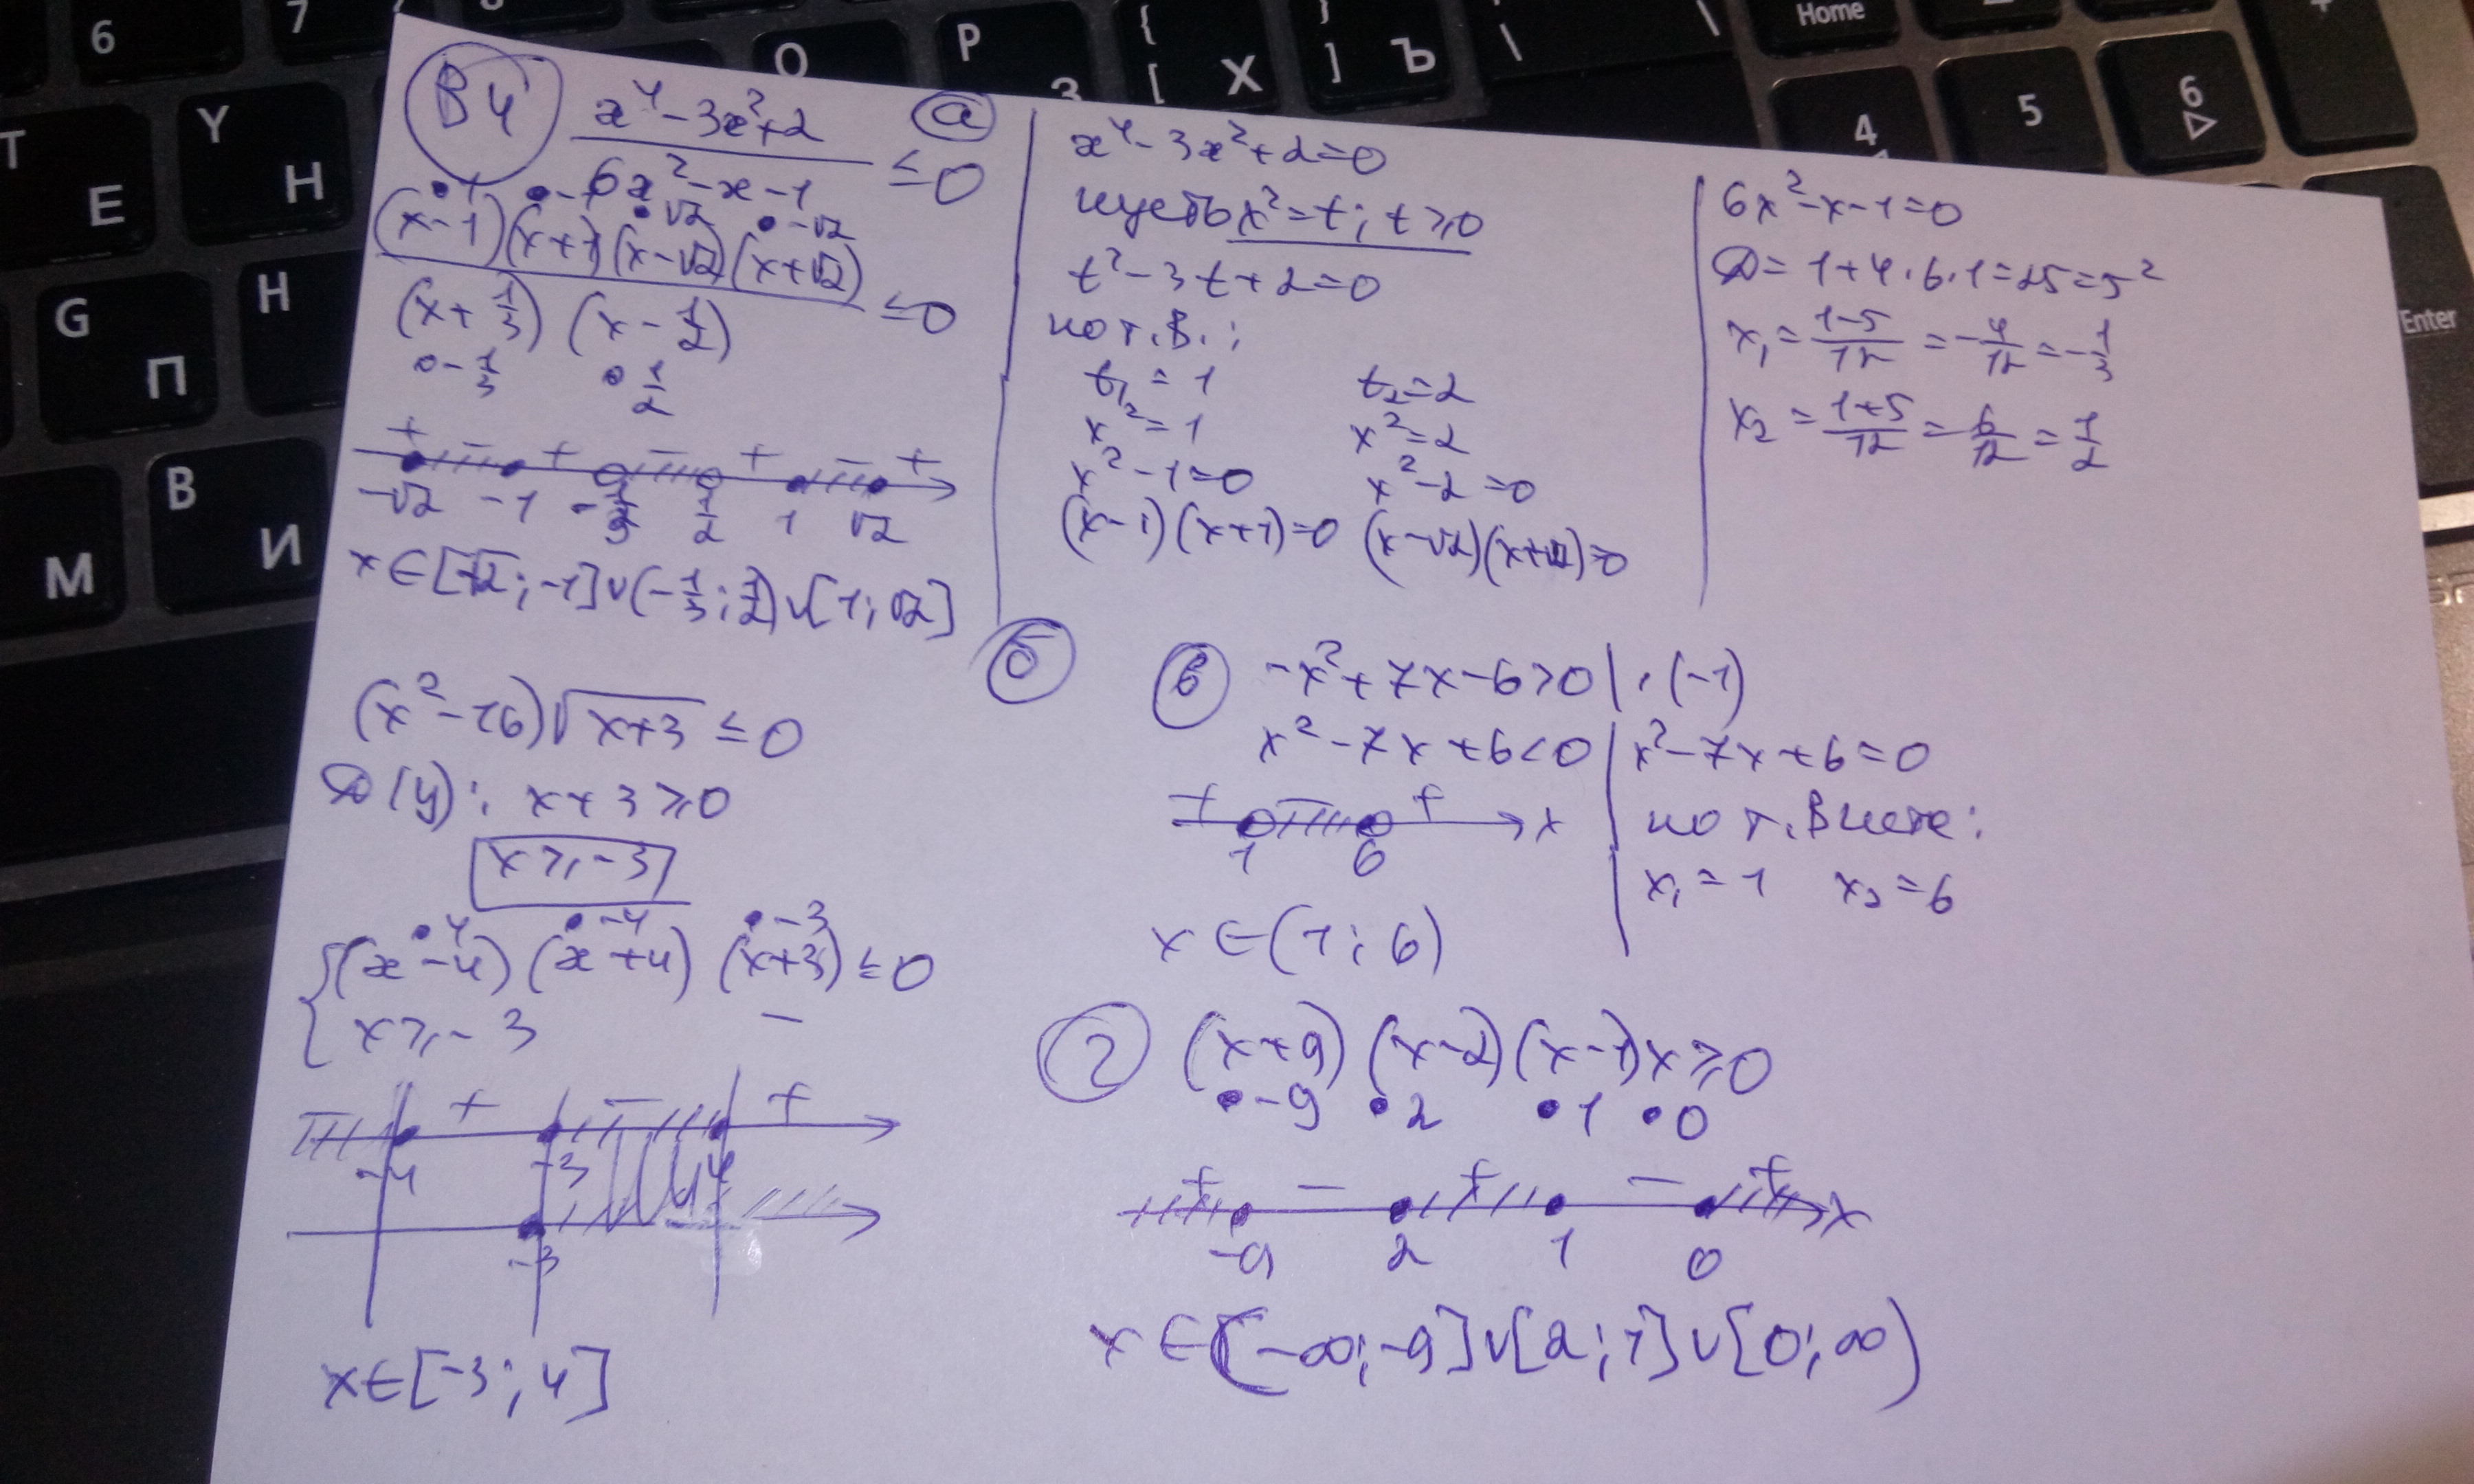 6 7
О P З { [ Х } ] Ъ \ \ Home
4 5 6
Т Е Y Н
G П Н
М В И
Enter
В4
а
x⁴-3x²+2
6x²-x-1 ≤0
•1 •-1 •√2 •-√2
(x-1)(x+1)(x-√2)(x+√2)
(x+1/3)(x-1/2) ≤0
∘-1/3 ∘1/2
+ - + - + - +
-√2 -1 -1/3 1/2 1 √2
x∈[-√2;-1]∪(-1/3;1/2)∪[1;√2]
x⁴-3x²+2=0
пусть x²=t; t≥0
t²-3t+2=0
по т.В.:
t₁=1 t₂=2
x²=1 x²=2
x²-1=0 x²-2=0
(x-1)(x+1)=0 (x-√2)(x+√2)=0
6x²-x-1=0
D=1+4·6·1=25=5²
x₁=(1-5)/12=-4/12=-1/3
x₂=(1+5)/12=6/12=1/2
б
(x²-16)√(x+3)≤0
D(y): x+3≥0
x≥-3
•4 •-4 •-3
{(x-4)(x+4)(x+3)≤0
x≥-3 -
- + - +
-4 -3 4
-3
x∈[-3;4]
в
-x²+7x-6>0|·(-1)
x²-7x+6<0
+ - + x
1 6
x∈(1;6)
x²-7x+6=0
по т. Виета:
x₁=1 x₂=6
г
(x+9)(x-2)(x-1)x≥0
•-9 •2 •1 •0
+ - + - + x
-9 2 1 0
x∈(-∞;-9]∪[2;1]∪[0;∞)